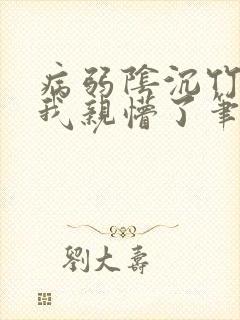 病弱陰沉竹
我親懵了筆
劉大壽